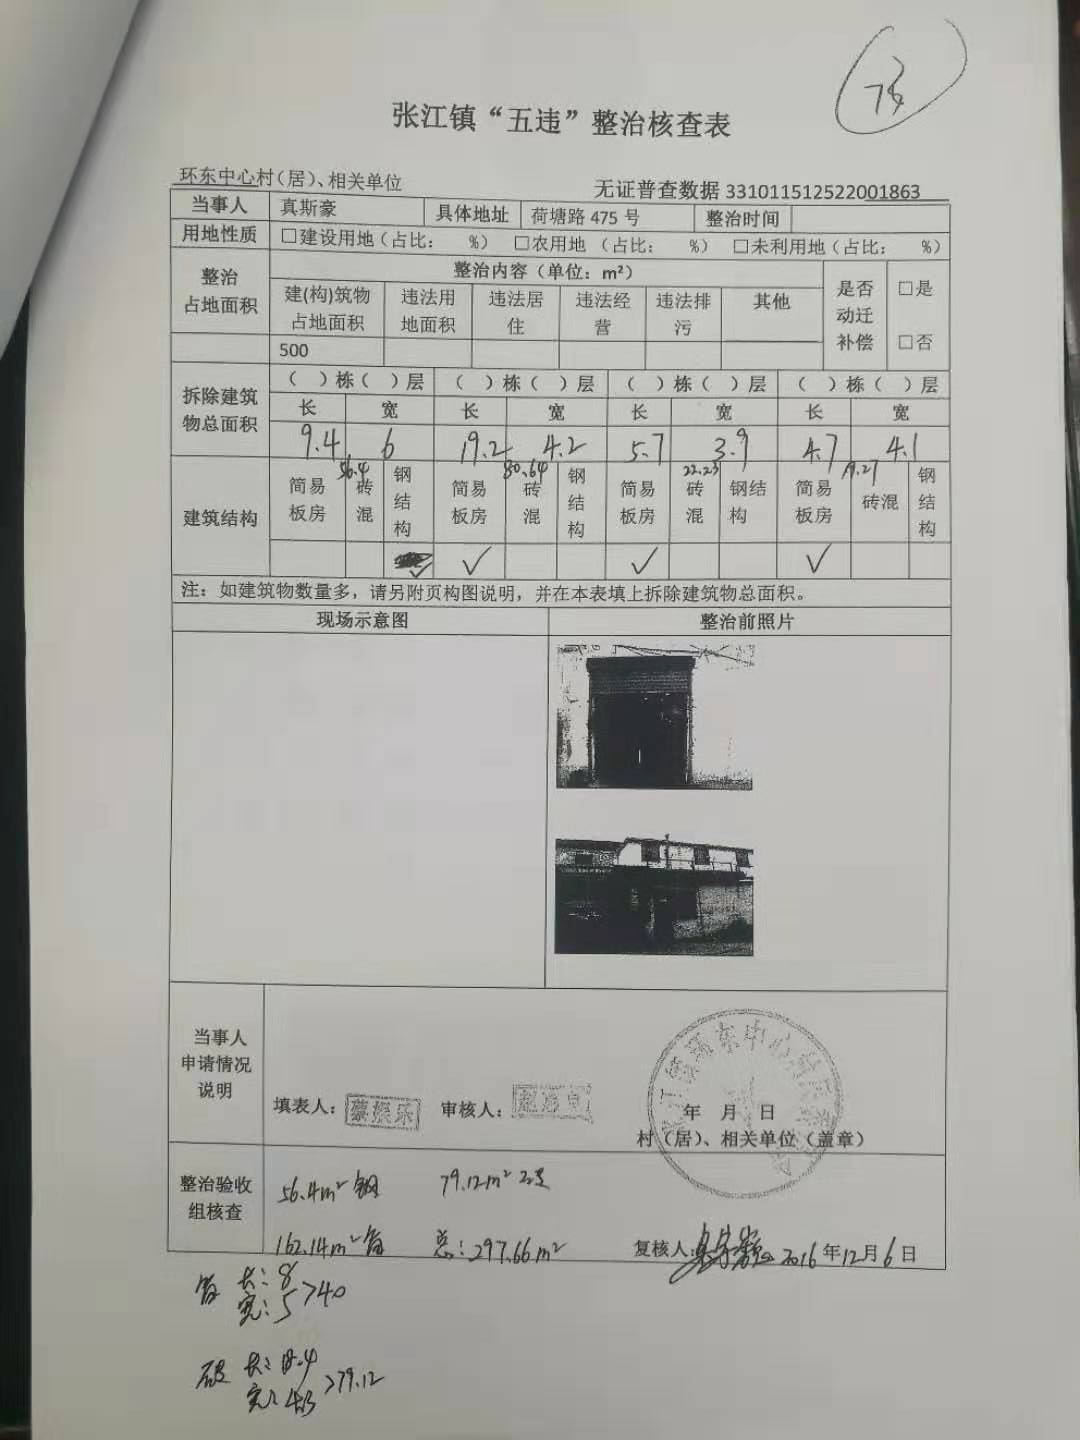 78
张江镇“五违”整治核查表
环东中心村(居)、相关单位 无证普查数据 331011512522001863
当事人 真斯豪 具体地址 荷塘路 475 号 整治时间
用地性质 □建设用地(占比: %) □农用地 (占比: %) □未利用地(占比: %)
整治占地面积 整治内容(单位: m²) 是否动迁补偿 □是 □否
建(构)筑物占地面积 违法用地面积 违法居住 违法经营 违法排污 其他
500
拆除建筑物总面积 ( )栋( )层 ( )栋( )层 ( )栋( )层 ( )栋( )层
长 宽 长 宽 长 宽 长 宽
9.4 6 19.2 4.2 5.7 3.9 4.7 4.1
56.4 80.64 22.23 19.27
建筑结构 简易板房 砖混 钢结构 简易板房 砖混 钢结构 简易板房 砖混 钢结构 简易板房 砖混 钢结构
✓ ✓ ✓ ✓
注: 如建筑物数量多, 请另附页构图说明, 并在本表填上拆除建筑物总面积。
现场示意图 整治前照片
当事人申请情况说明
填表人: 蔡振乐 审核人:
年 月 日
村(居)、相关单位(盖章)
整治验收组核查
56.4m² 钢 79.12m²
162.14m² 简 总: 297.66m² 复核人: 2016 年 12 月 6 日
简 长: 8 >40
宽: 5
长: 18.4 >79.12
宽: 4.3